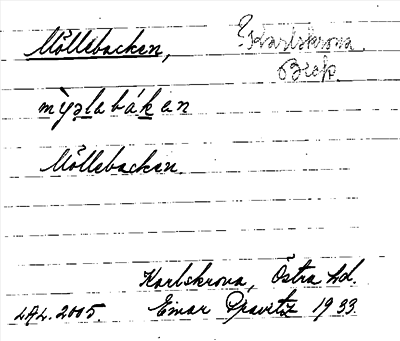 Möllebacken,
Karlskrona.
Blek.
mỳəlabákan
Möllebacken.
Karlskrona, Östra hd.
LAL. 2005. Einar 1933.